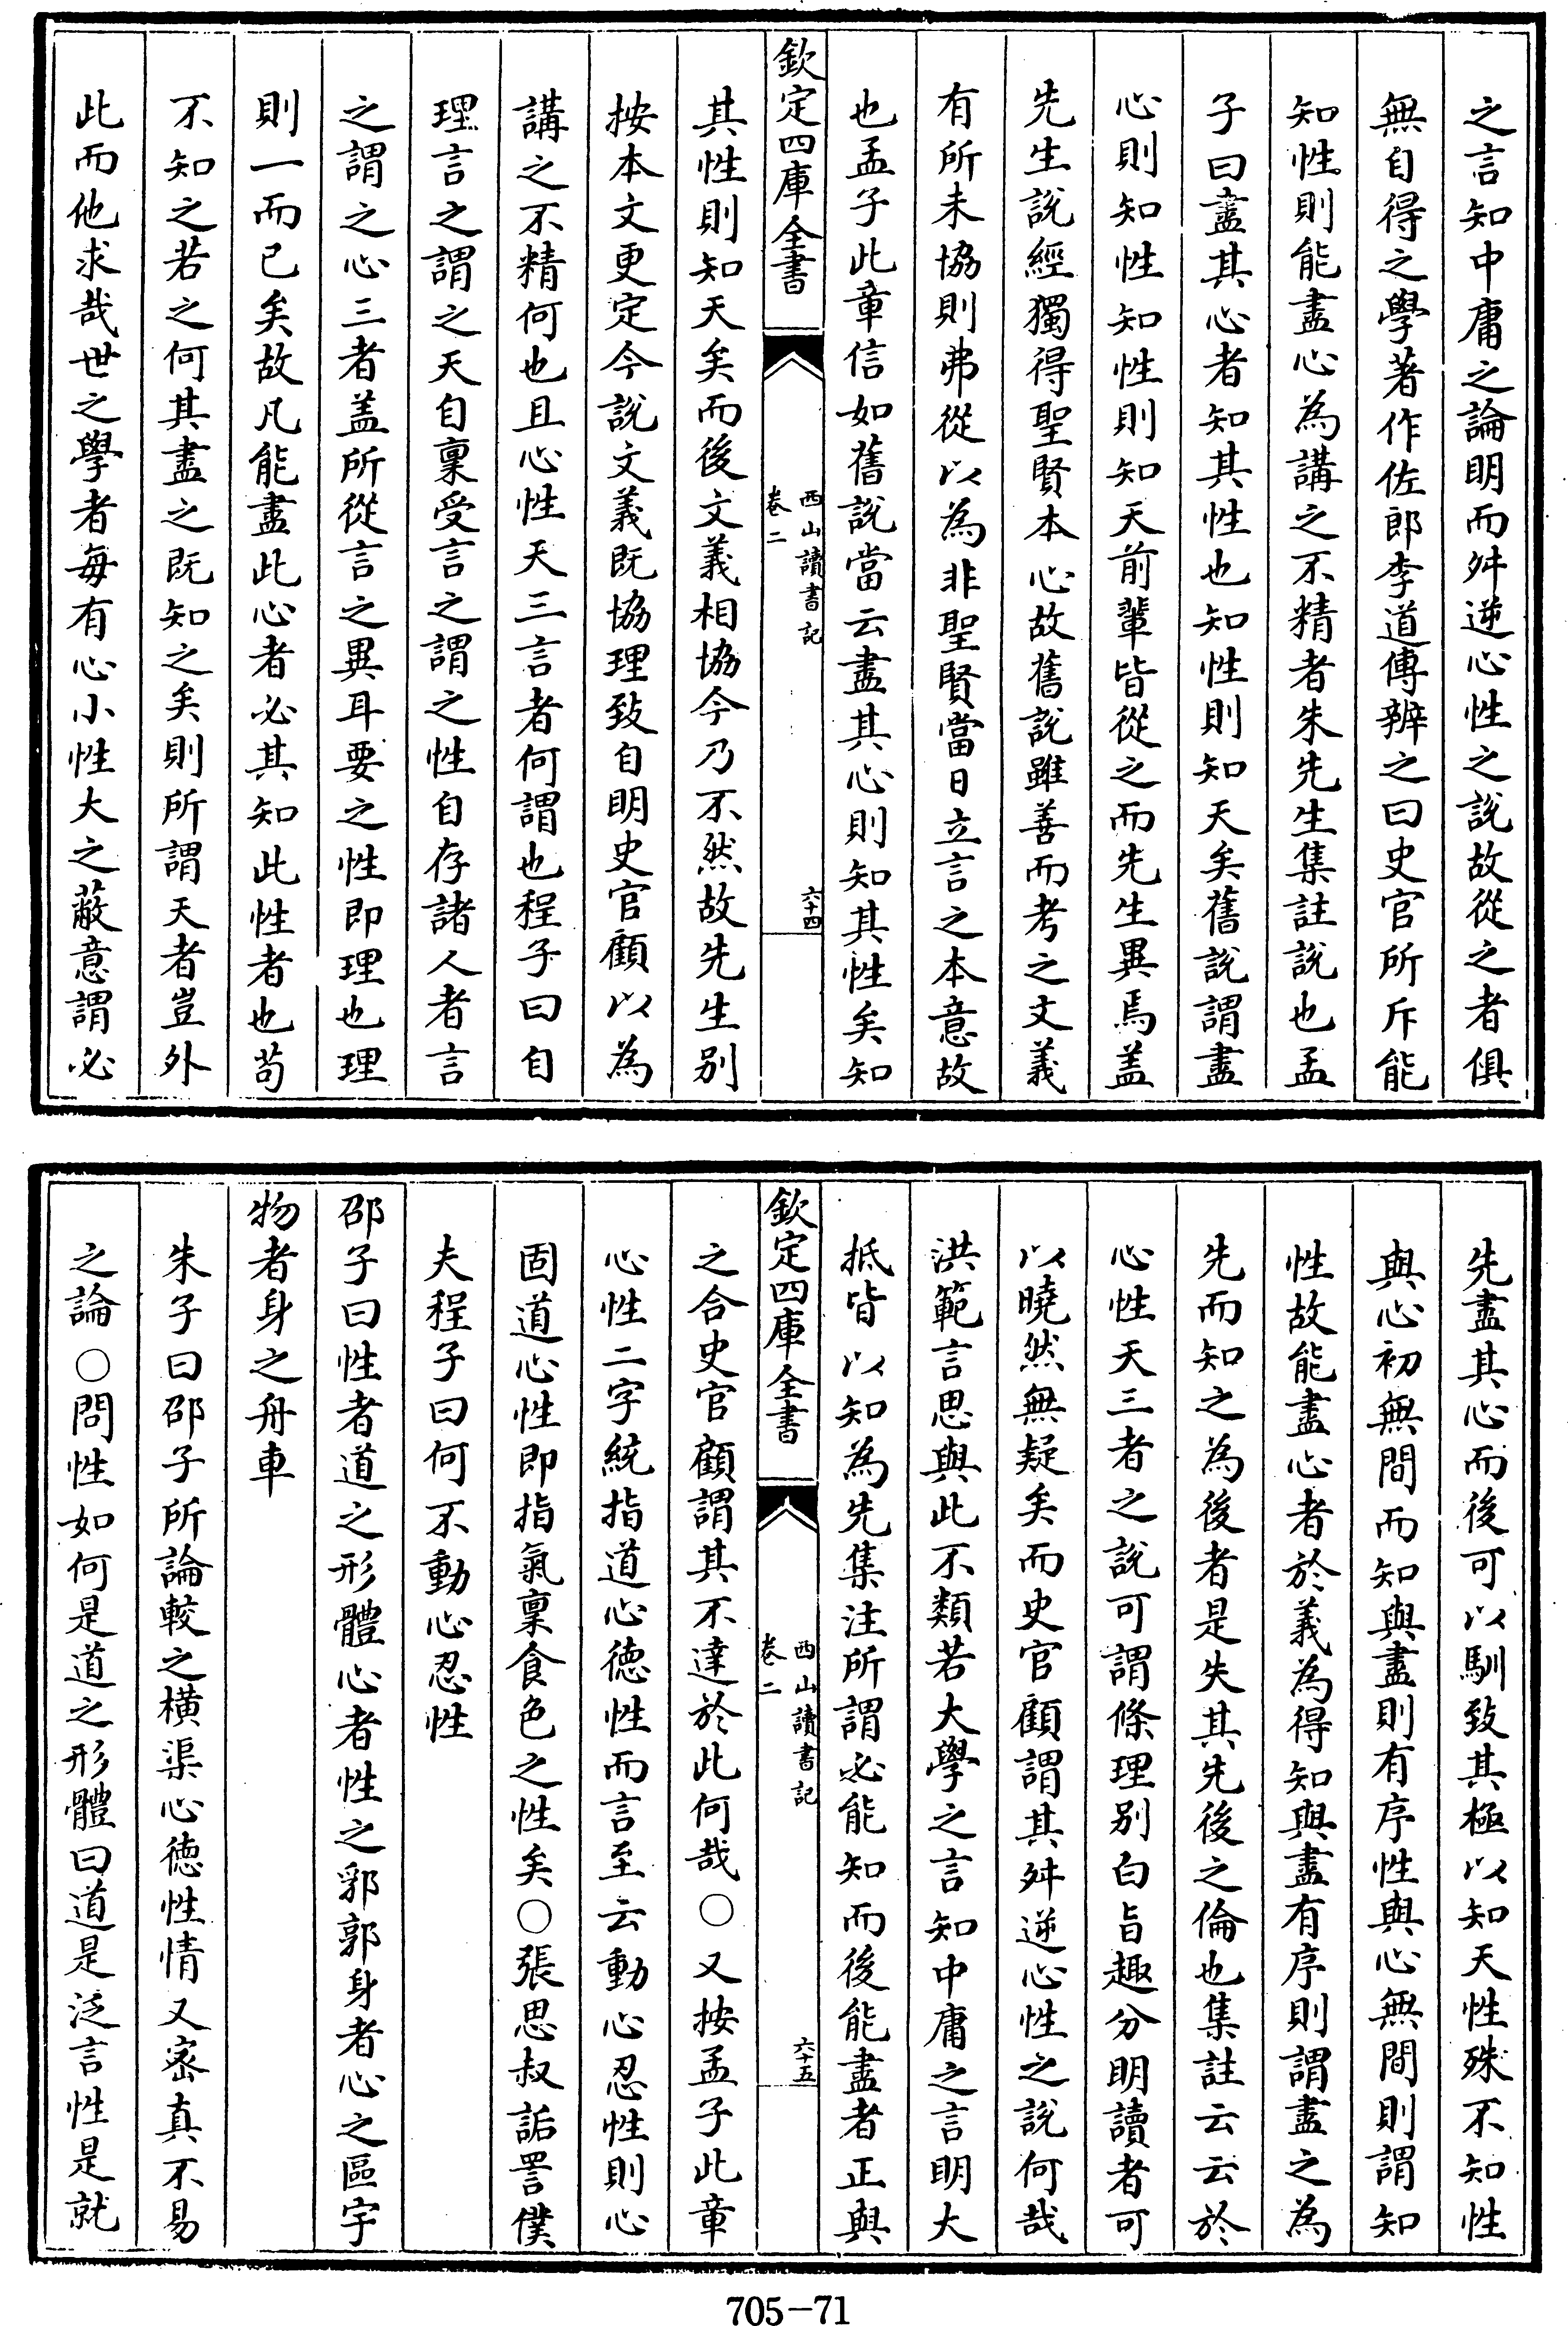 之言知中庸之論明而舛逆心性之説故從之者俱
無自得之學著作佐郎李道傳辨之曰史官所斥能
知性則能盡心為講之不精者朱先生集註説也孟
子曰盡其心者知其性也知性則知天矣舊説謂盡
心則知性知性則知天前輩皆從之而先生異焉盖
先生説經獨得聖賢本心故舊説雖善而考之文義
有所未協則弗從以為非聖賢當日立言之本意故
也孟子此章信如舊説當云盡其心則知其性矣知
欽定四庫全書
西山讀書記
卷二
六十四
其性則知天矣而後文義相協今乃不然故先生别
按本文更定今説文義既協理致自明史官顧以為
講之不精何也且心性天三言者何謂也程子曰自
理言之謂之天自稟受言之謂之性自存諸人者言
之謂之心三者盖所從言之異耳要之性即理也理
則一而已矣故凡能盡此心者必其知此性者也苟
不知之若之何其盡之既知之矣則所謂天者豈外
此而他求哉世之學者每有心小性大之蔽意謂必
先盡其心而後可以馴致其極以知天性殊不知性
與心初無間而知與盡則有序性與心無間則謂知
性故能盡心者於義為得知與盡有序則謂盡之為
先而知之為後者是失其先後之倫也集註云云於
心性天三者之説可謂條理别白旨趣分明讀者可
以曉然無疑矣而史官顧謂其舛逆心性之説何哉
洪範言思與此不類若大學之言知中庸之言明大
抵皆以知為先集注所謂必能知而後能盡者正與
欽定四庫全書
西山讀書記
卷二
六十五
之合史官顧謂其不達於此何哉○又按孟子此章
心性二字統指道心徳性而言至云動心忍性則心
固道心性即指氣稟食色之性矣○張思叔詬詈僕
夫程子曰何不動心忍性
邵子曰性者道之形體心者性之郛郭身者心之區宇
物者身之舟車
朱子曰邵子所論較之横渠心徳性情又宻真不易
之論○問性如何是道之形體曰道是泛言性是就
705-71